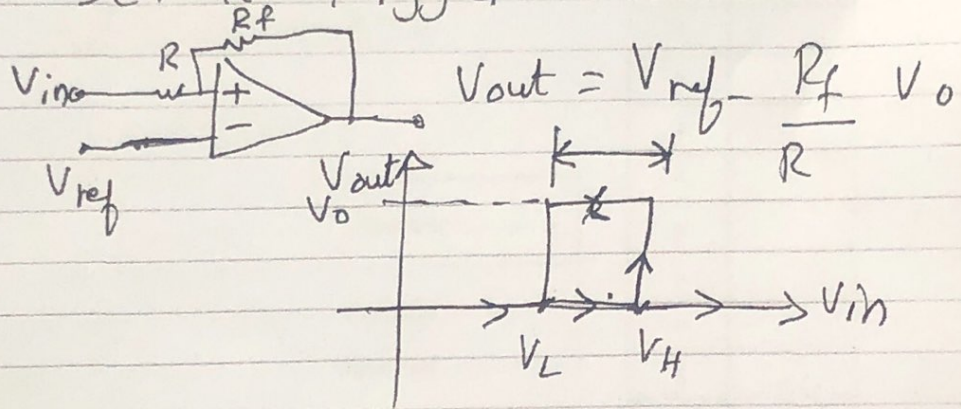 Rf
R
Vin
Vref
+
-
Vout = Vref - Rf/R Vo
Vout
Vo
Vin
VL
VH